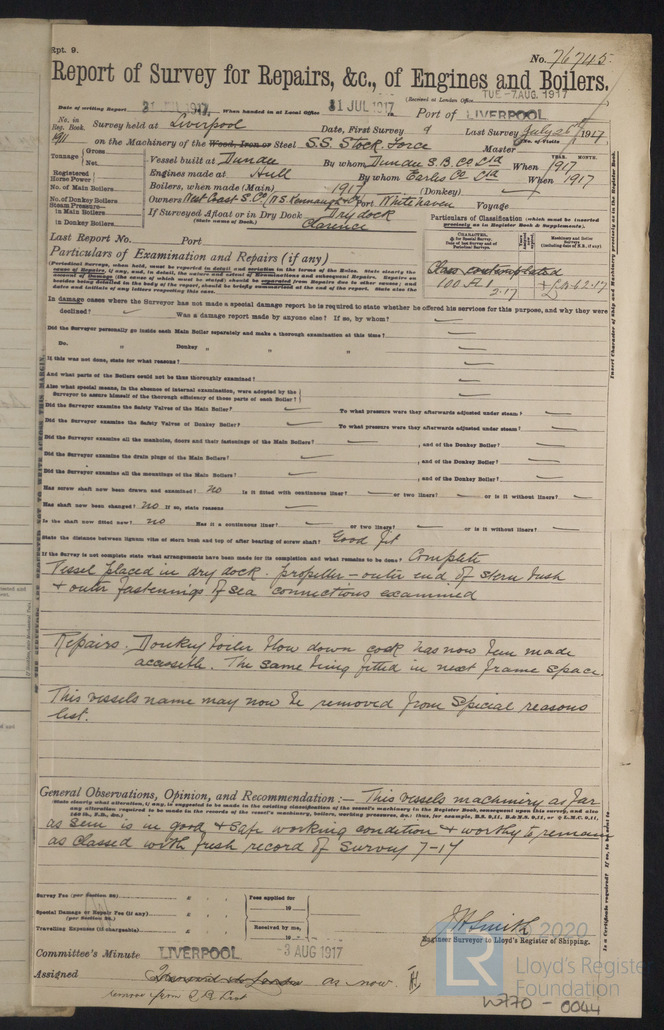 Rpt. 9.
No. 76745
Report of Survey for Repairs, &c., of Engines and Boilers.
TUE-7 AUG. 1917
(Received at London Office
Date of writing Report 31 JUL 1917. When handed in at Local Office 31 JUL 1917 Port of LIVERPOOL
No. in Reg. Book. Survey held at Liverpool Date, First Survey 9 Last Survey July 26th 1917
1911 on the Machinery of the Wood, Iron or Steel S.S. Stock Force Master
(No. of Visits
Tonnage Gross Net Vessel built at Dundee By whom Dundee S.B. Co Ltd When 1917
YEAR. MONTH.
Registered Horse Power Engines made at Hull By whom Earles Co Ltd When 1917
No. of Main Boilers Boilers, when made (Main) 1917 (Donkey)
No. of Donkey Boilers Owners West Coast S.S. Co Port Whitehaven Voyage
Steam Pressure in Main Boilers If Surveyed Afloat or in Dry Dock Dry dock
in Donkey Boilers (State name of Dock.) Clarence
Particulars of Classification (which must be inserted precisely as in Register Book & Supplements).
Last Report No. Port
Particulars of Examination and Repairs (if any)
Class contemplated
100 A1 2.17
In damage cases where the Surveyor has not made a special damage report he is required to state whether he offered his services for this purpose, and why they were
declined? Was a damage report made by anyone else? If so, by whom?
Did the Surveyor personally go inside each Main Boiler separately and make a thorough examination at this time?
Do. " Donkey " " "
If this was not done, state for what reasons?
And what parts of the Boilers could not be thus thoroughly examined?
Also what special means, in the absence of internal examination, were adopted by the
Surveyor to assure himself of the thorough efficiency of those parts of each Boiler?
Did the Surveyor examine the Safety Valves of the Main Boiler? To what pressure were they afterwards adjusted under steam?
Did the Surveyor examine the Safety Valves of Donkey Boiler? To what pressure were they afterwards adjusted under steam?
Did the Surveyor examine all the manholes, doors and their fastenings of the Main Boilers? , and of the Donkey Boiler?
Did the Surveyor examine the drain plugs of the Main Boilers? , and of the Donkey Boiler?
Did the Surveyor examine all the mountings of the Main Boilers? , and of the Donkey Boiler?
Has screw shaft now been drawn and examined? no Is it fitted with continuous liner? or two liners? or is it without liners?
Has shaft now been changed? no If so, state reasons
Is the shaft now fitted new? no Has it a continuous liner? or two liners? or is it without liners?
State the distance between lignum vitæ of stern bush and top of after bearing of screw shaft? Good fit
If the Survey is not complete state what arrangements have been made for its completion and what remains to be done? Complete
Vessel placed in dry dock. propeller – outer end of stern bush
& outer fastenings of sea connections examined
Repairs. Donkey boiler blow down cock has now been made
accessible. The same being fitted in next frame space.
This vessels name may now be removed from Special reasons
list.
General Observations, Opinion, and Recommendation:— This vessels machinery as far
as seen is in good & safe working condition & worthy to remain
as Classed with fresh record of Survey 7-17
Survey Fee (per Section 29) £ Fees applied for
Special Damage or Repair Fee (if any) £ 19
(per Section 29.)
Travelling Expenses (if chargeable) £ Received by me,
19
J W Smith
Engineer Surveyor to Lloyd's Register of Shipping.
Committee's Minute LIVERPOOL -3 AUG 1917
Assigned as now
remove from S.R. List
2020
LR
Lloyd's Register
Foundation
W770-0044